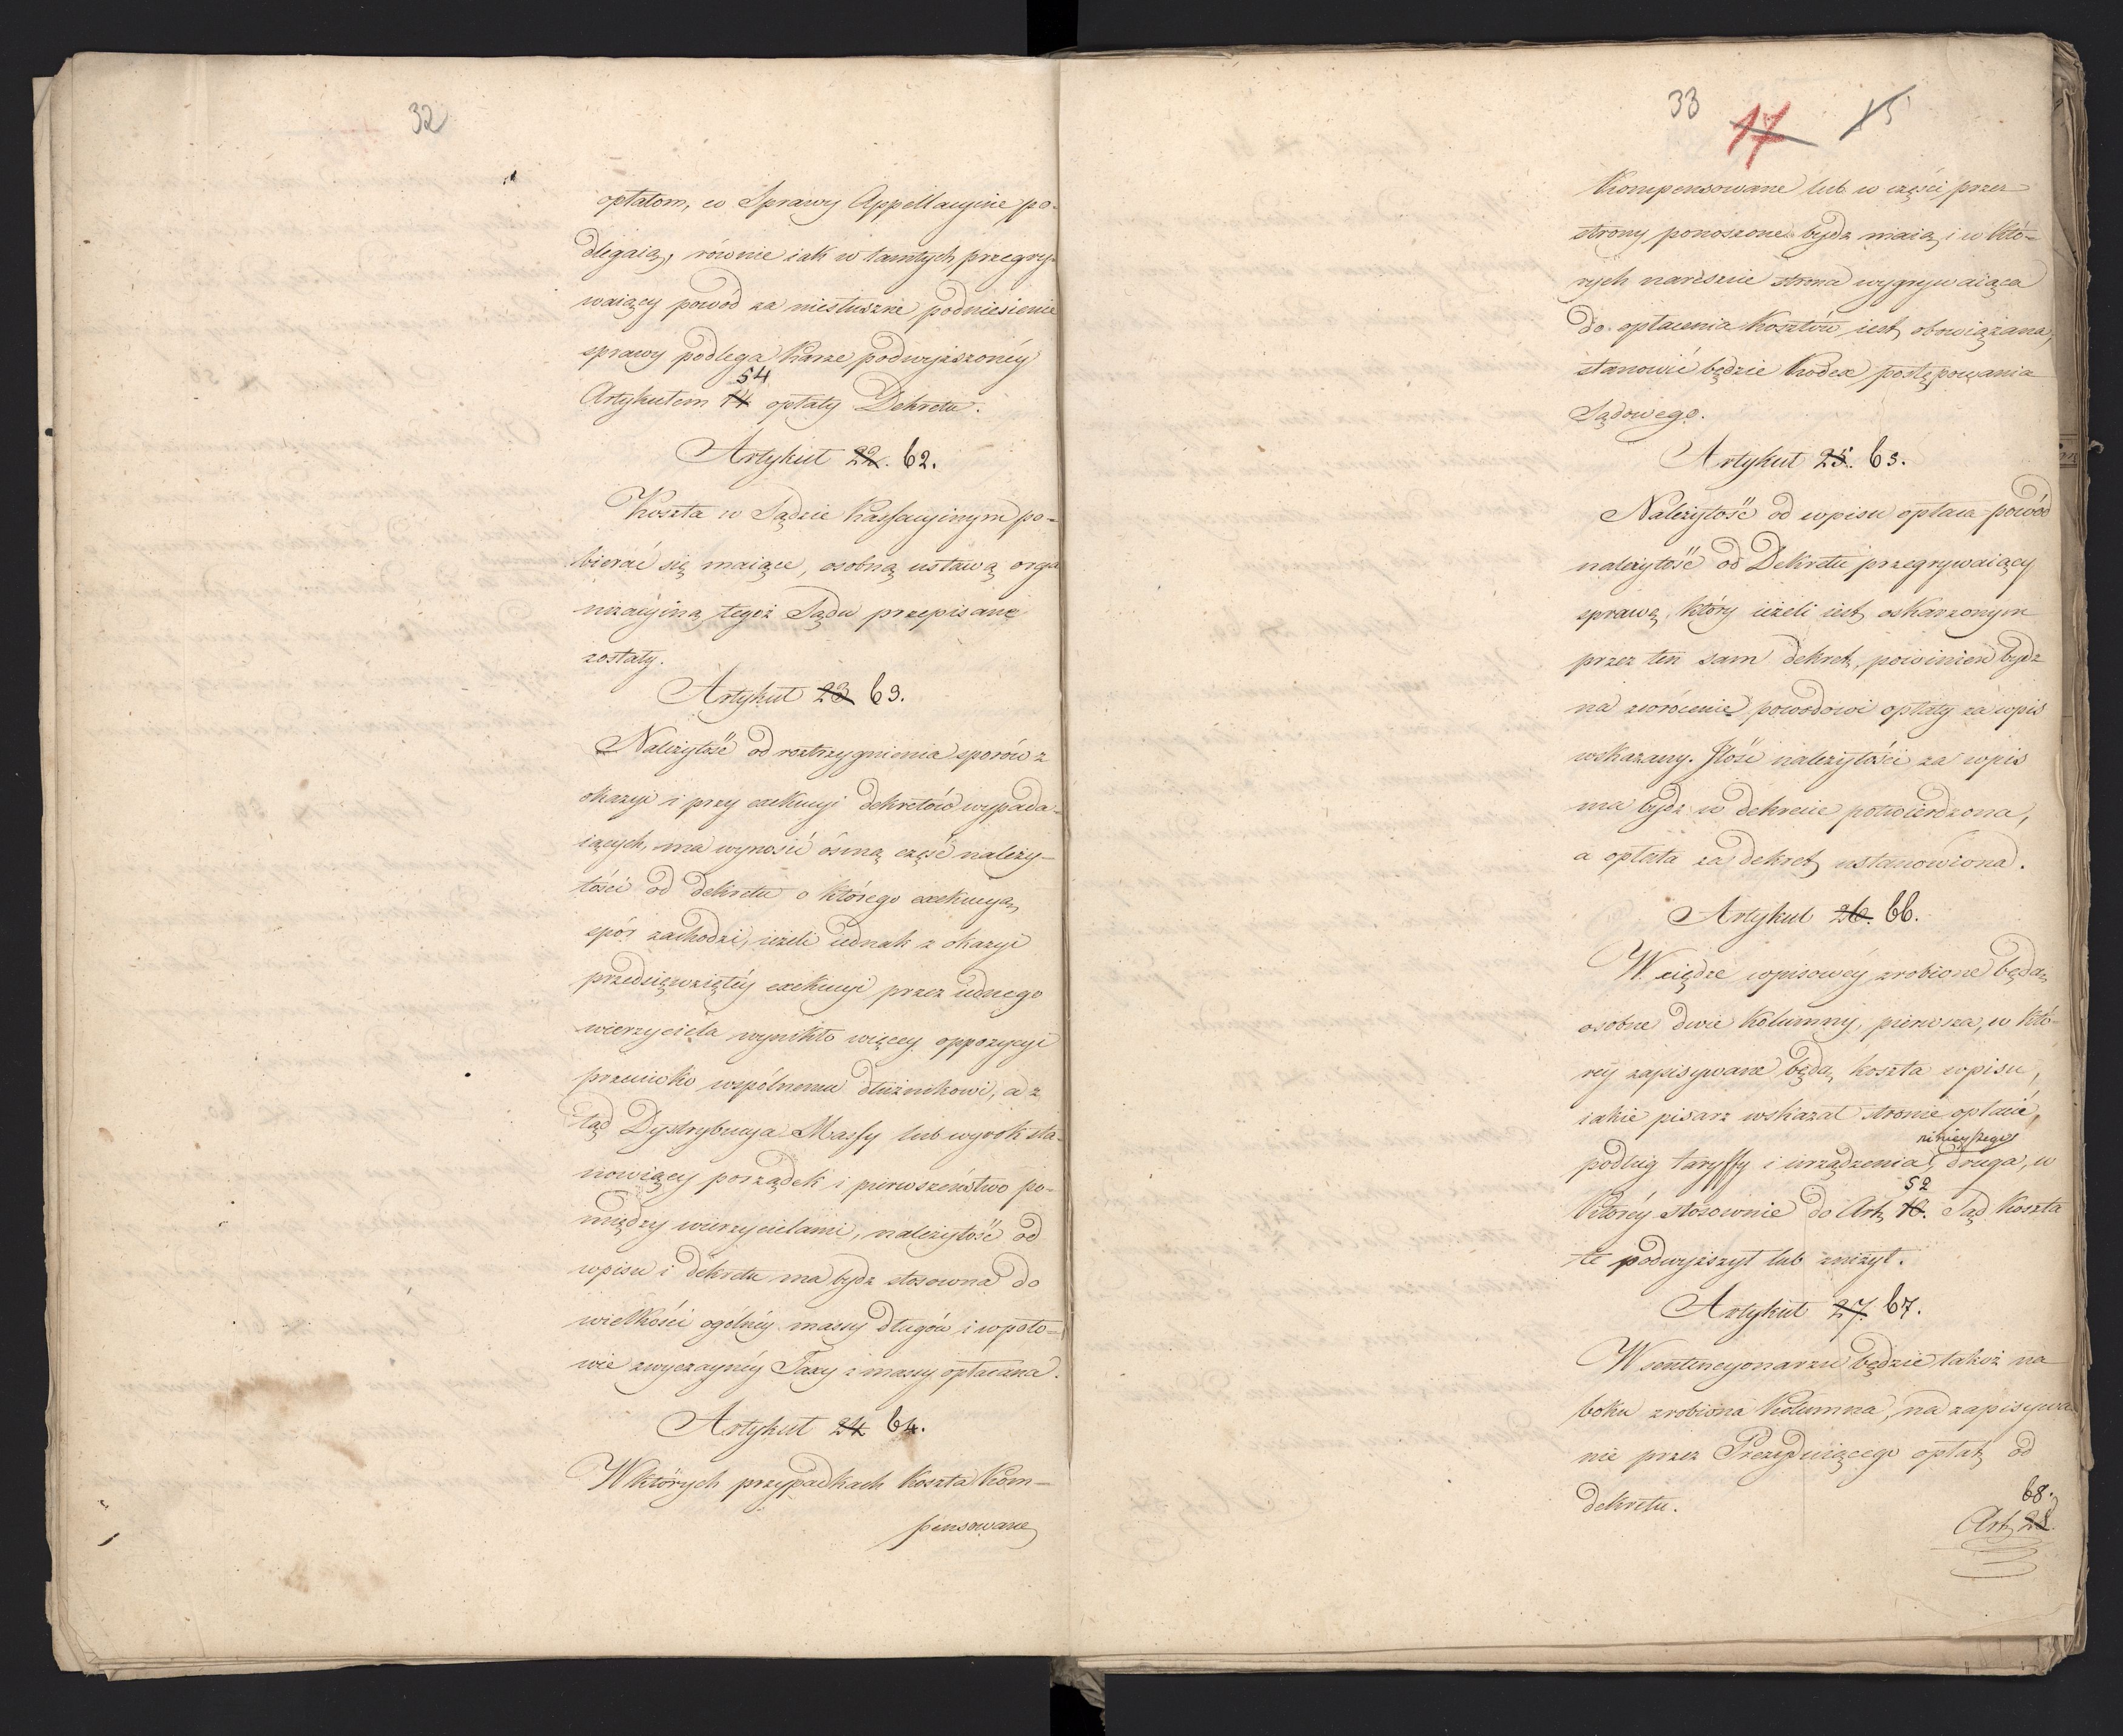 32
opłatom, co Sprawy Appellacyine po-
dlegaią, równie iak w tamtych przegry-
waiący powód za niesłuszne podniesienie
sprawy podlega karze podwyższonéy
54
Artykułem 14 opłaty Dekretu.
Artykuł 22. 62.
Koszta w Sądzie Kassacyinym po-
bierać się maiące, osobną ustawą orga
nizacyiną tegoż Sądu przepisane
zostały.
Artykuł 23 63.
Należytość od roztrzygnienia sporów z
okazyi i przy exekucyi dekretów wypada-
iących, ma wynosić ósmą część należy-
tości od dekretu o którego exekucyą
spór zachodzi, ieżeli iednak z okazyi
przedsięwziętéy exekucyi przez iednego
wierzyciela wynikło więcey oppozycyi
przeciwko wspólnemu dłużnikowi, a z
tąd Dystrybucya Massy lub wyrok sta-
nowiący porządek i pierwszeństwo po-
między wierzycielami, należytość od
wpisu i dekretu ma bydz stosowna do
wielkości ogólnéy massy długów i w poło-
wie zwyczaynéy Taxy z massy opłacana.
Artykuł 24 64.
W których przypadkach koszta kom-
pensowane
33 17 15
kompensowane lub w części przez
strony ponoszone bydz maią, i w któ-
rych nareszcie strona wygrywaiąca
do opłacenia kosztów iest obowiązana,
stanowić będzie kodex postępowania
Sądowego.
Artykuł 25. 65.
Należytość od wpisu opłaca powód
należytość od Dekretu przegrywaiący
sprawę, który ieżeli iest oskarzonym
przez ten sam dekret, powinien bydz
na zwrócenie powodowi opłaty za wpis
wskazany. Ilość należytości za wpis
ma bydz w dekrecie potwierdzona,
a opłata za dekret ustanowiona.
Artykuł 26. 66.
W xiędze wpisowéy zrobione będą
osobne dwie kolumny, pierwsza, w któ-
réy zapisywane będą koszta wpisu,
iakie pisarz wskazał stronie opłacić,
ninieyszego
podług taryffy i urządzenia, druga, w
52
któréy stosownie do Art. 10. Sąd koszta
te podwyższył lub zniżył.
Artykuł 27. 67.
W sentencyonarzu będzie takoż na
boku zrobiona kolumna, na zapisywa-
nie przez Prezyduiącego opłat od
dekretu.
68.
Art. 28.